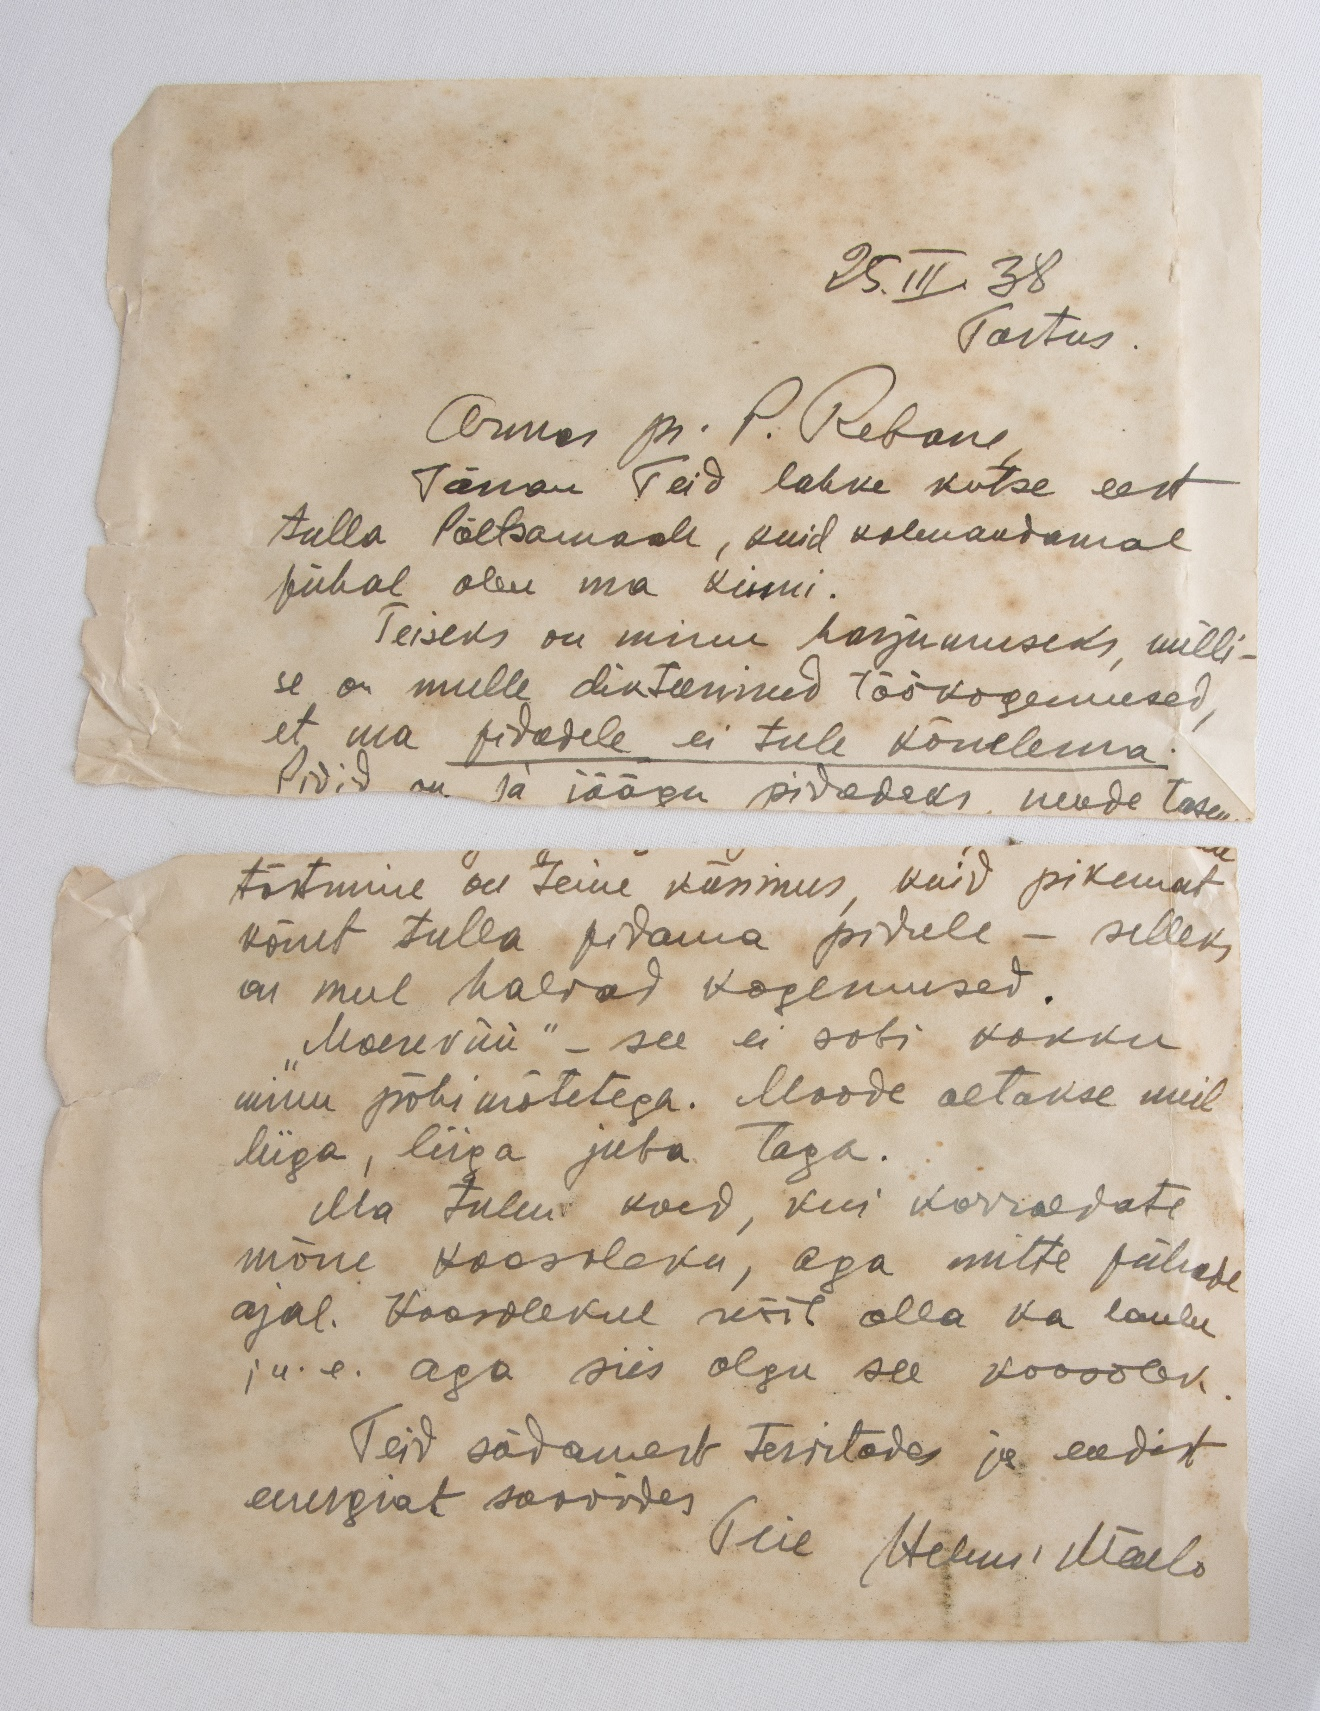 25.III. 38
Tartus.
Armas pr. P. Rebane,
Tänan Teid lahke kutse eest
tulla Põltsamaale, kuid kolmandamal
pühal olen ma kinni.
Teiseks on minu harjumuseks, milli-
se on mulle dikteerinud töökogemused,
et ma pidudele ei tule kõnelema.
Pidid on ja jäägu pidudeks. nende tasem
tõstmine on teine küsimus, kuid pikemat
kõnet tulla pidama pidule – selleks
on mul halvad kogemused.
„Moerevüü" – see ei sobi kokku
minu põhimõtetega. Moode aetakse meil
liiga, liiga juba taga.
Ma tulen koed, kui korraldate
mõne koosoleku, aga mitte pühade
ajal. Koosolekul võit olla ka laulu
j.n.e. aga siis olgu see koosolek.
Teid südamest tervitades ja endist
energiat soovides
Teie Helmi Mäelo